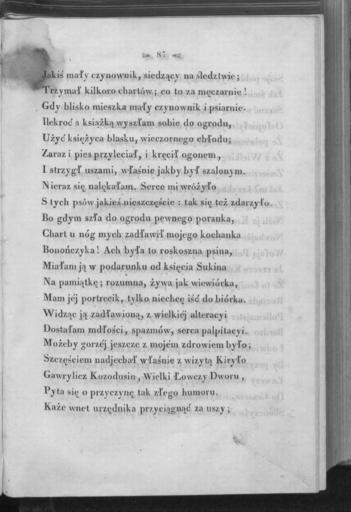 87
Jakiś mały czynownik, siedzący na śledztwie;
Trzymał kilkoro chartów; co to za męczarnie!
Gdy blisko mieszka mały czynownik i psiarnie.
Ilekroć z książką wyszłam sobie do ogrodu,
Użyć księżyca blasku, wieczornego chłodu;
Zaraz i pies przyleciał, i kręcił ogonem,
I strzygł uszami, właśnie jakby był szalonym.
Nieraz się nalękałam. Serce mi wróżyło
S tych psów jakieś nieszczęście: tak się też zdarzyło.
Bo gdym szła do ogrodu pewnego poranka,
Chart u nóg mych zadławił mojego kochanka
Bonończyka! Ach była to roskoszna psina,
Miałam ją w podarunku od księcia Sukina
Na pamiątkę; rozumna, żywa jak wiewiórka,
Mam jéj portrecik, tylko niechcę iść do biórka.
Widząc ją zadławioną, z wielkiéj alteracyi
Dostałam mdłości, spazmów, serca palpitacyi.
Możeby gorzéj jeszcze z mojém zdrowiem było;
Szczęściem nadjechał właśnie z wizytą Kiryło
Gawrylicz Kozodusin, Wielki Łowczy Dworu,
Pyta się o przyczynę tak złego humoru.
Każe wnet urzędnika przyciągnąć za uszy;